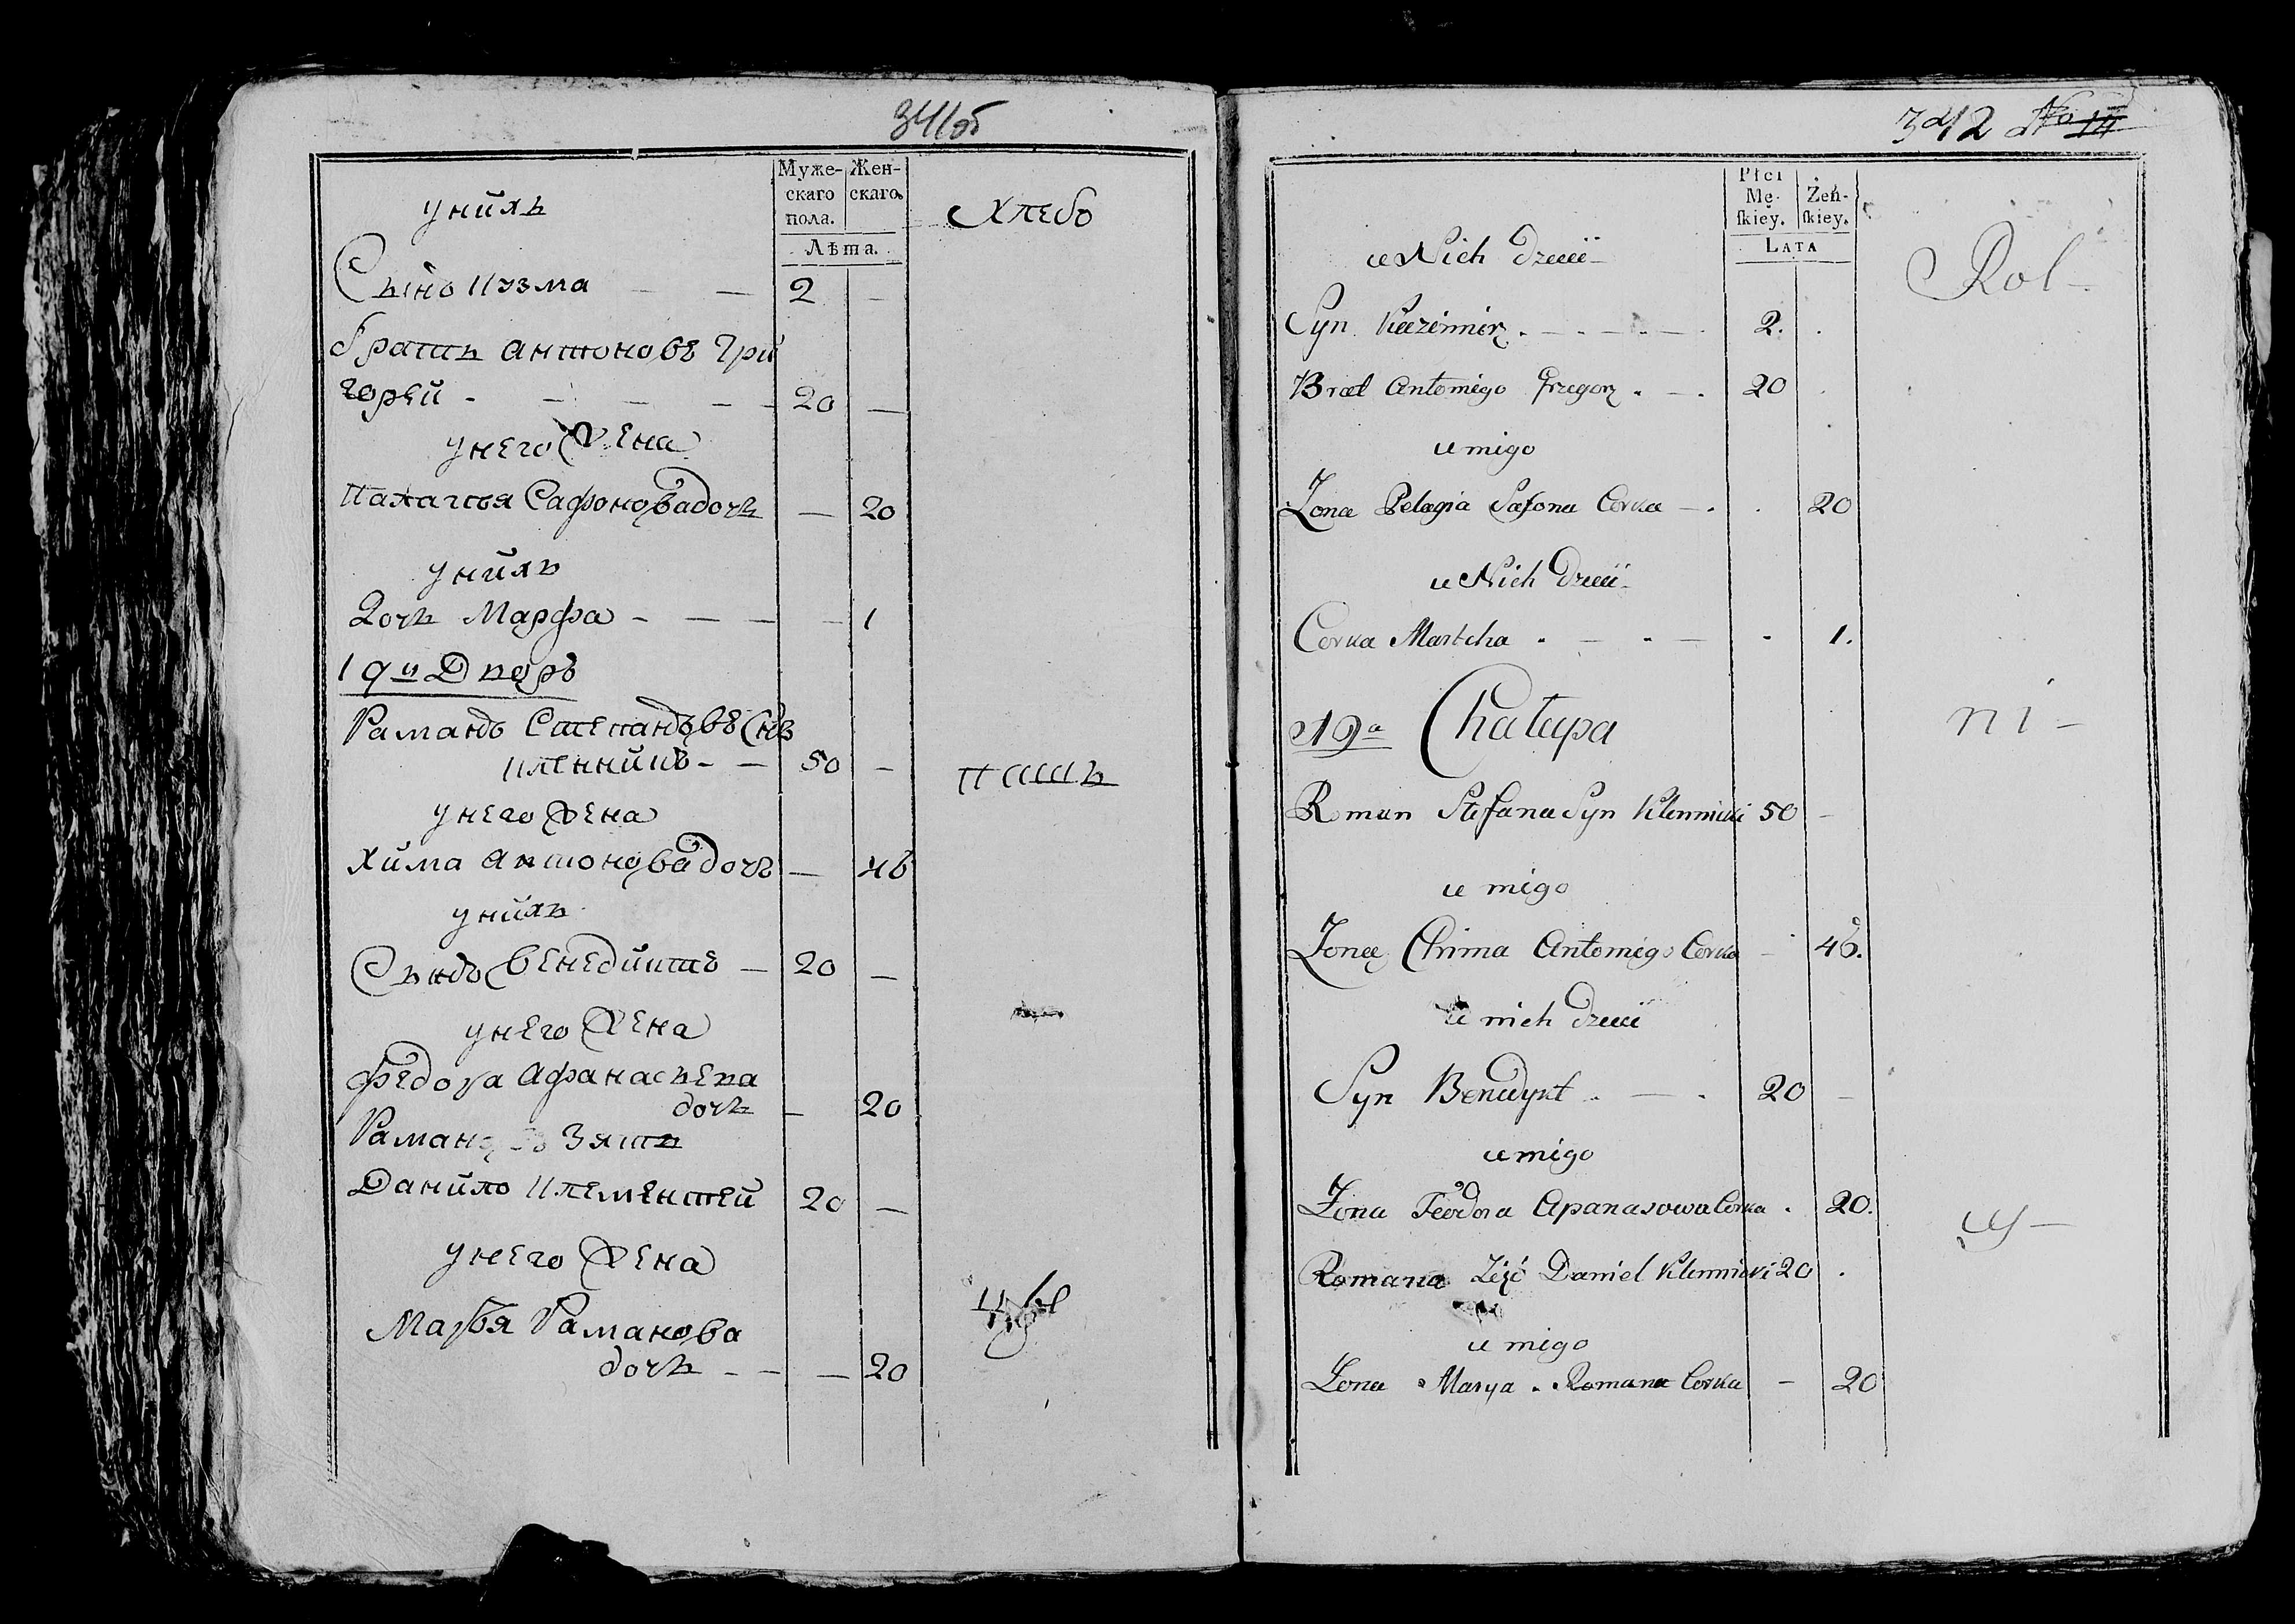 341об
Муже- Жен-
скаго скаго.
пола.
Лѣта.
унихъ
хлебо
Сынъ Кузма — — 2 —
братъ антоновъ Гри
горей - — — — — 20 —
унего жена
Палагѣя Сафонова дочь — 20
унихъ
Дочь Марфа - — — — 1
19й Дворъ
Раманъ Степановъ Снъ
Кленникъ - — 50 —
пашъ
унего жена
Хима антонова дочь — 46
унихъ
Сынъ бенедиктъ — 20 —
унего жена
федора афанасьева
дочь — 20
Зять
Данило Клементей 20 —
унего жена
Марья Раманова
дочь - — — 20
342
Płci
Mę- Żeń-
ſkiey. ſkiey.
LATA
u Nich Dzieci
Rol-
Syn Kazimierz . — 2. .
Brat Antoniego Grzegorz . — . 20 .
u niego
Zona Pelagia Safona Corka — . . 20
u Nich Dzieci
Corka Martcha . — . — . 1.
19a Chałupa
ni-
Roman Stefana Syn Klennicki 50 —
u niego
Zona Chima Antoniego Corka — 46.
u nich dzieci
Syn Benedykt . — . 20 —
u niego
Zona Teodora Apanasowa Corka . 20.
cy-
Romana Zięć Daniel Klennicki 20 .
u niego
Zona Marya . Romana Corka — 20